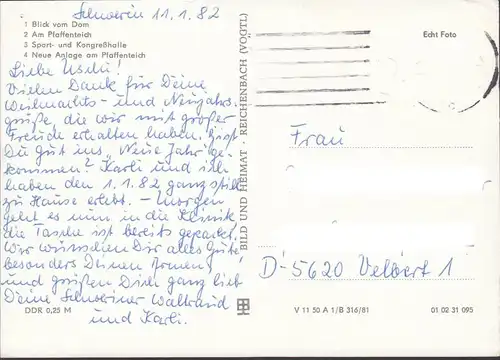 Schwerin 11.1.82
1 Blick vom Dom
2 Am Pfaffenteich
3 Sport- und Kongreßhalle
4 Neue Anlage am Pfaffenteich
Liebe Uschi!
Vielen Dank für Deine
Weihnachts- und Neujahrs-
grüße, die wir mit großer
Freude erhalten haben. Bist
Du gut ins "Neue Jahr" ge-
kommen? Karli und ich
haben den 1.1.82 ganz still
zu Hause erlebt. - Morgen
geht es nun in die Klinik
die Tasche ist bereits gepackt.
Wir wünschen Dir alles Gute
besonders Deinen Armen
und grüßen Dich ganz lieb
Deine Schweriner Waltraud
und Karli.
DDR 0,25 M
BILD UND HEIMAT · REICHENBACH (VOGTL)
Echt Foto
Frau
D-5620 Velbert 1
V 11 50 A 1/B 316/81
01 02 31 095